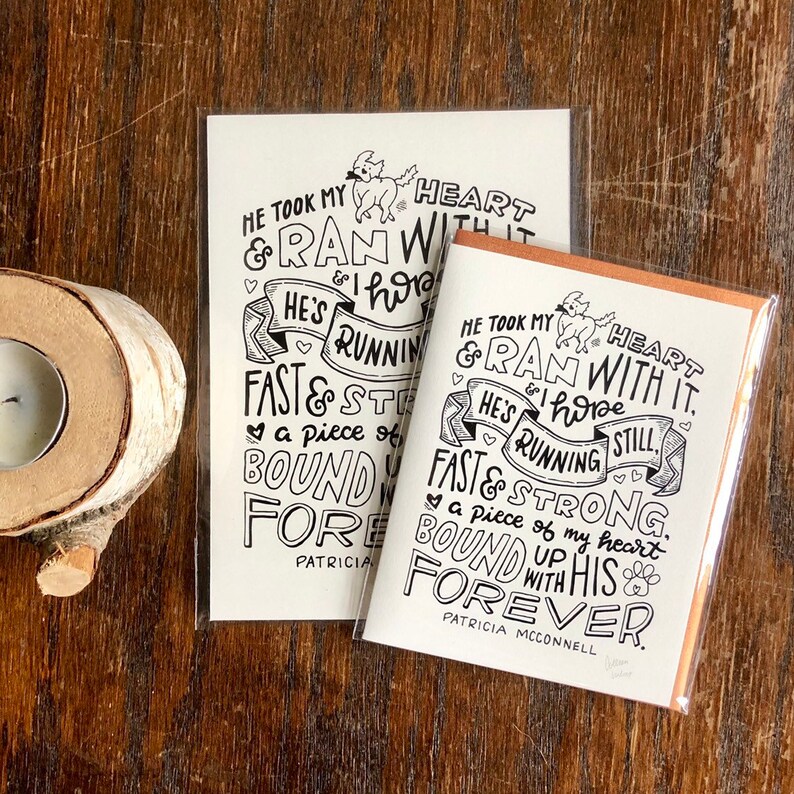 HE TOOK MY HEART
& RAN WITH IT,
& I hope
HE'S RUNNING
FAST & STRO
a piece of
BOUND UP
FOREVER
PATRICIA
HE TOOK MY HEART
& RAN WITH IT,
& I hope
HE'S RUNNING STILL,
FAST & STRONG,
a piece of my heart
BOUND UP WITH HIS
FOREVER.
PATRICIA MCCONNELL